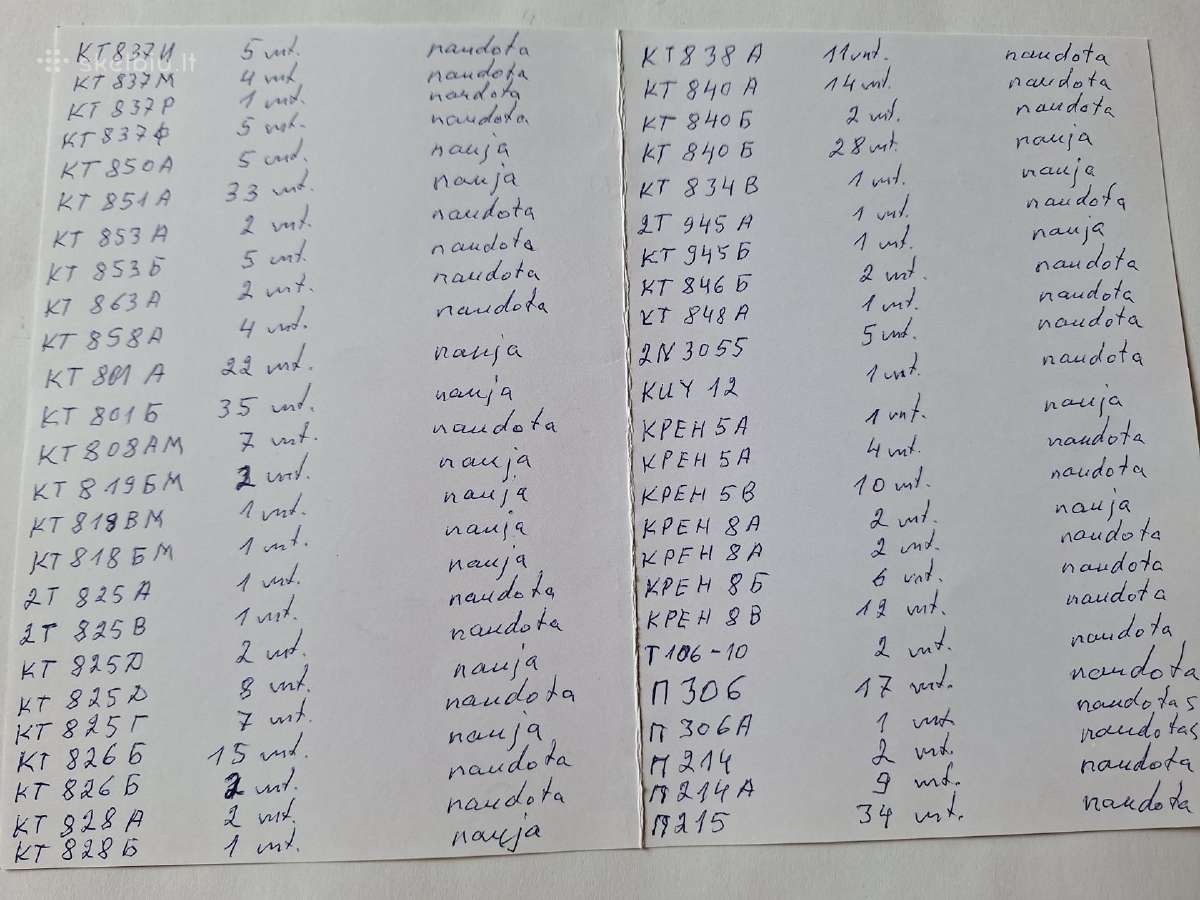 КТ837И 5 vnt. naudota
КТ837М 4 vnt. naudota
КТ837Р 1 vnt. naudota
КТ837Ф 5 vnt. naudota
КТ850А 5 vnt. nauja
КТ851А 33 vnt. nauja
КТ853А 2 vnt. naudota
КТ853Б 5 vnt. naudota
КТ863А 2 vnt. naudota
КТ858А 4 vnt. naudota
КТ801А 22 vnt. nauja
КТ801Б 35 vnt. nauja
КТ808АМ 7 vnt. naudota
КТ819БМ 2 vnt. nauja
КТ819ВМ 1 vnt. nauja
КТ818БМ 1 vnt. nauja
2Т825А 1 vnt. nauja
2Т825В 1 vnt. naudota
КТ825D 2 vnt. naudota
КТ825D 8 vnt. nauja
КТ825Г 7 vnt. naudota
КТ826Б 15 vnt. nauja
КТ826Б 2 vnt. naudota
КТ828А 2 vnt. naudota
КТ828Б 1 vnt. nauja
КТ838А 11 vnt. naudota
КТ840А 14 vnt. naudota
КТ840Б 2 vnt. naudota
КТ840Б 28 vnt. nauja
КТ834В 1 vnt. nauja
2Т945А 1 vnt. naudota
КТ945Б 1 vnt. nauja
КТ846Б 2 vnt. naudota
КТ848А 1 vnt. naudota
2N3055 5 vnt. naudota
КИY12 1 vnt. naudota
КРЕН5А 1 vnt. nauja
КРЕН5А 4 vnt. naudota
КРЕН5В 10 vnt. naudota
КРЕН8А 2 vnt. nauja
КРЕН8А 2 vnt. naudota
КРЕН8Б 6 vnt. naudota
КРЕН8В 12 vnt. naudota
Т106-10 2 vnt. naudota
П306 17 vnt. naudota
П306А 1 vnt naudotas
П214 2 vnt. naudotas
П214А 9 vnt. naudota
П215 34 vnt. naudota
skelbiu.lt